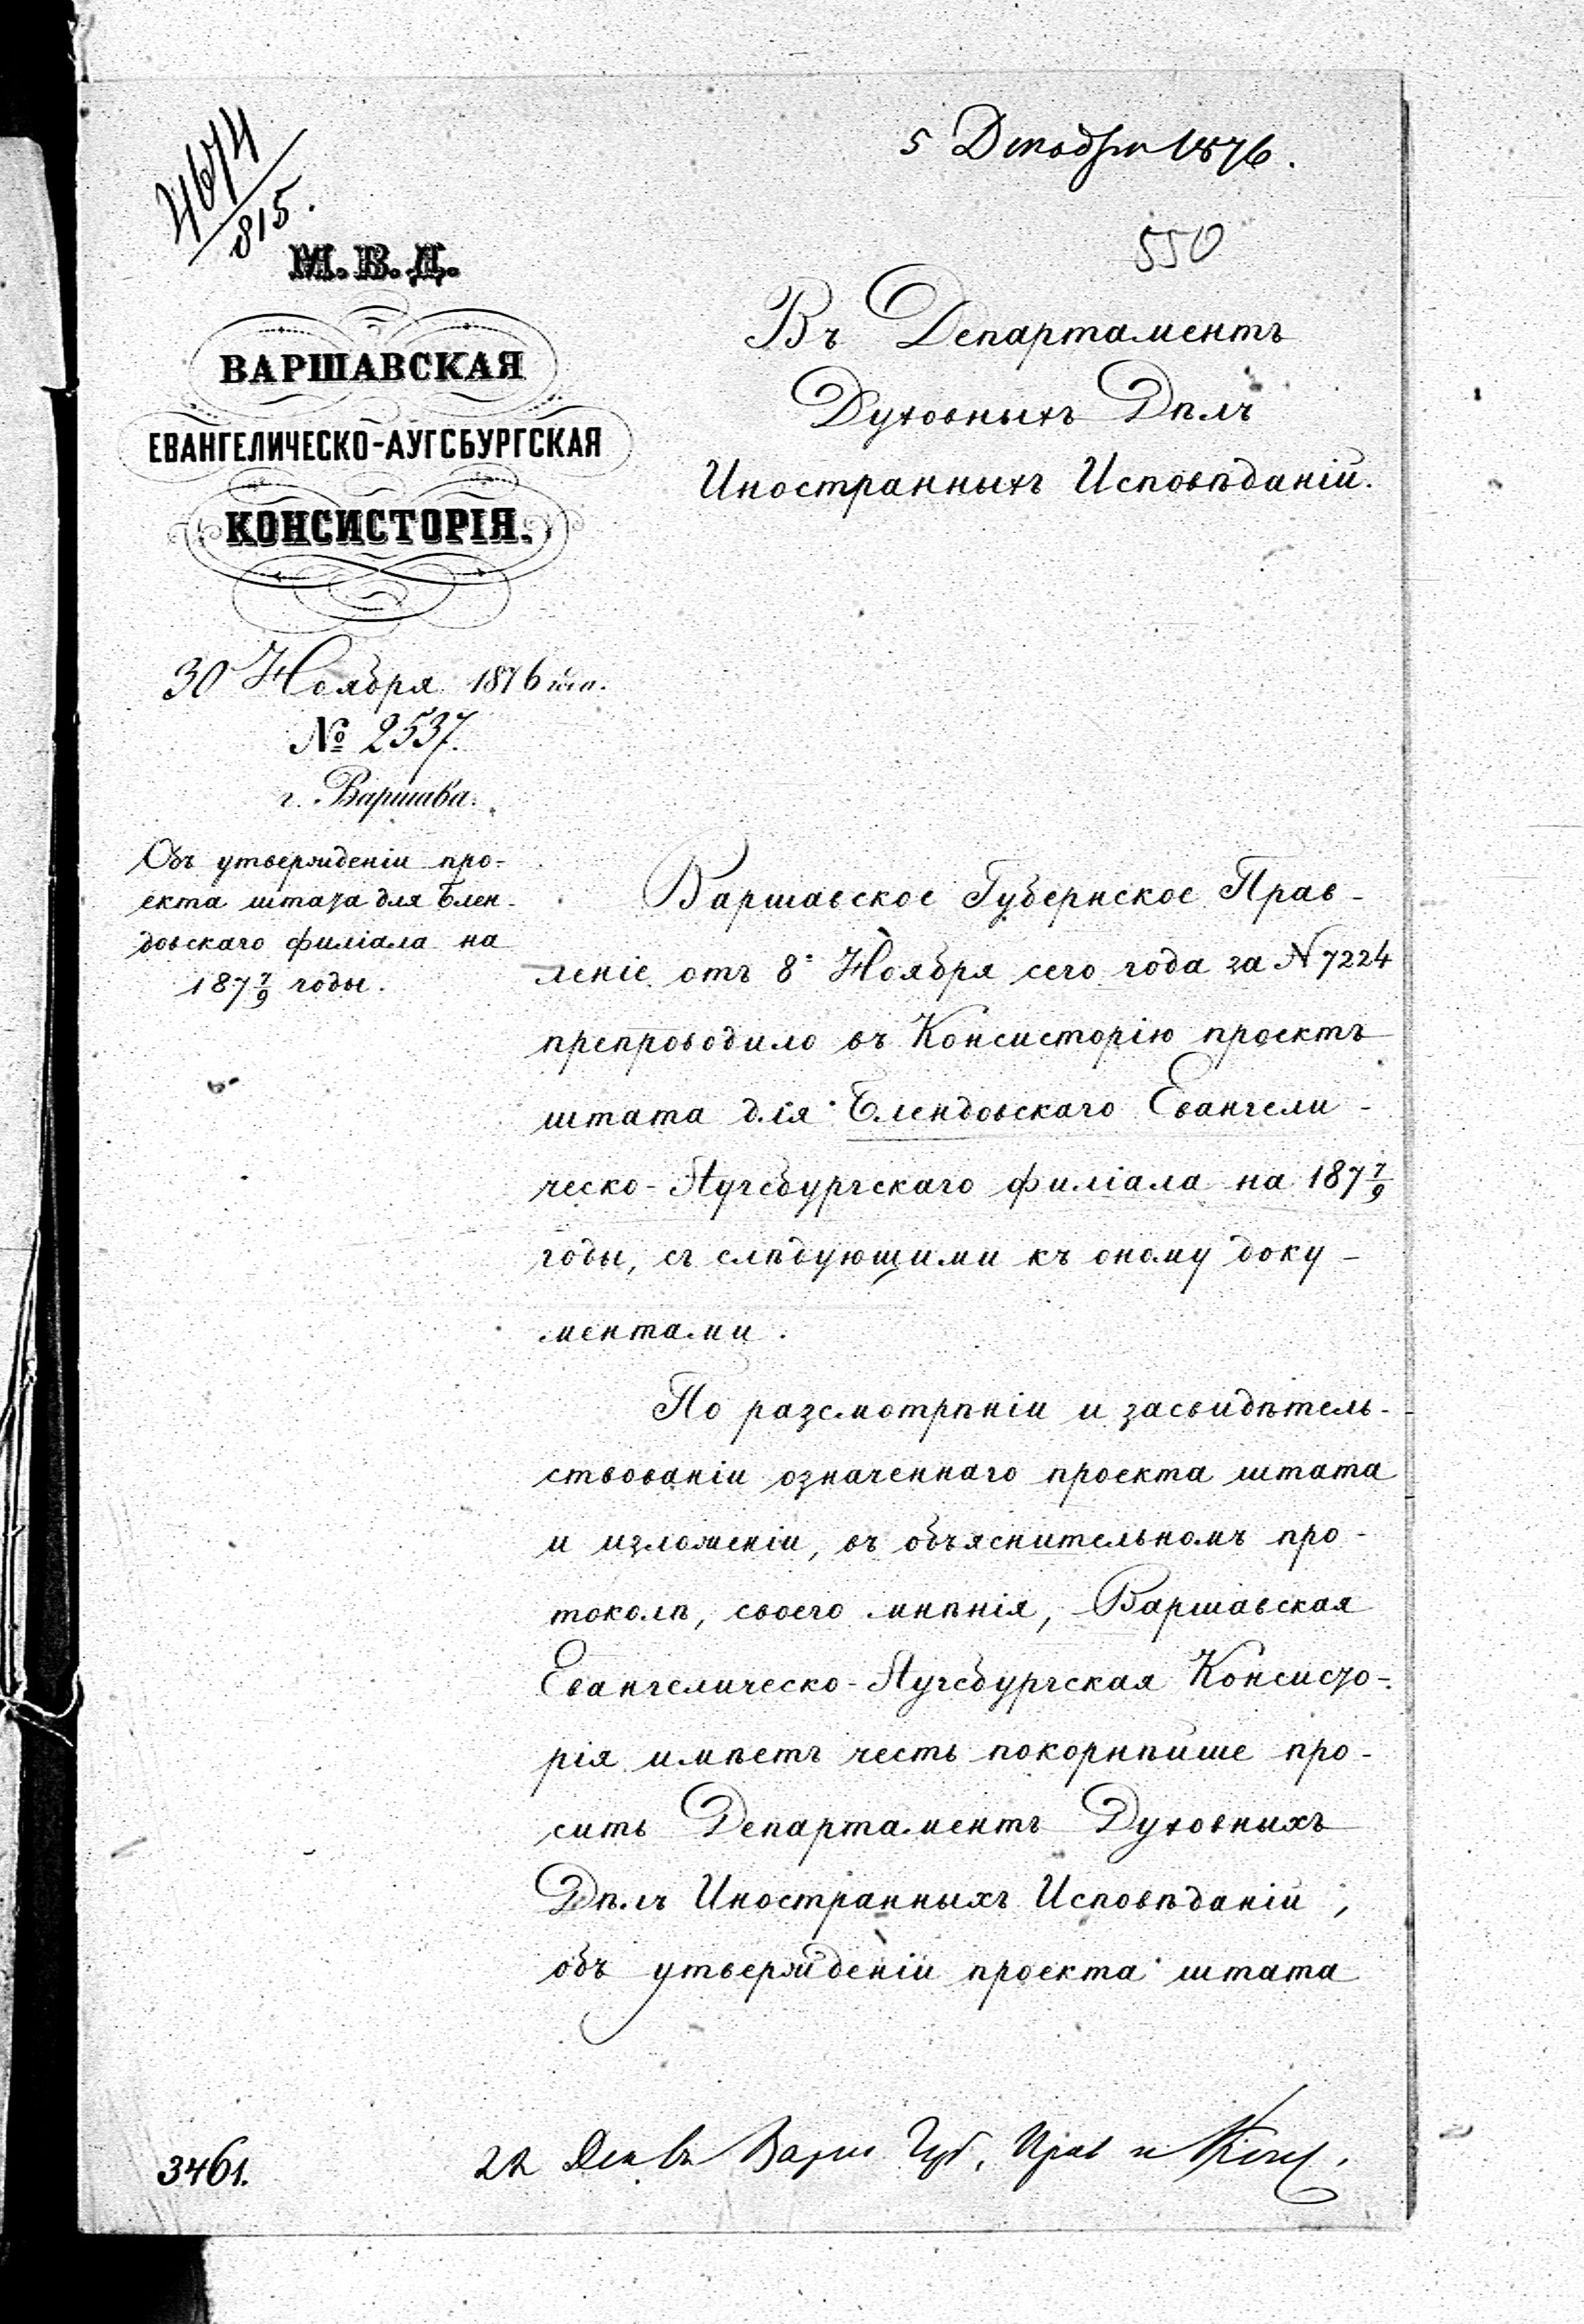 4674
815.
5 Декабря 1876.
550
М. В. Д.
ВАРШАВСКАЯ
ЕВАНГЕЛИЧЕСКО-АУГСБУРГСКАЯ
КОНСИСТОРІЯ.
30 Ноября 1876 года.
№ 2537.
г. Варшава.
Въ Департаментъ
Духовныхъ Дѣлъ
Иностранныхъ Исповѣданій.
Объ утвержденіи про-
екта штата для Блен-
довскаго филіала на
187 7/9 годы.
Варшавское Губернское Прав-
леніе отъ 8 Ноября сего года за N 7224
препроводило въ Консисторію проектъ
штата для Блендовскаго Евангели-
ческо-Аугсбургскаго филіала на 187 7/9
годы, съ слѣдующими къ оному доку-
ментами.
По разсмотрѣніи и засвидѣтель-
ствованіи означеннаго проекта штата
и изложеніи, въ объяснительномъ про-
токолѣ, своего мнѣнія, Варшавская
Евангелическо-Аугсбургская Консисто-
рія имѣетъ честь покорнѣйше про-
сить Департаментъ Духовныхъ
Дѣлъ Иностранныхъ Исповѣданій,
объ утвержденіи проекта штата
3461.
22 Дек Варш Губ. Прав и Конс.